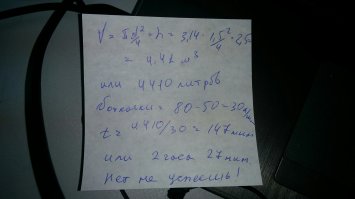 V = πd²/4 · h = 3,14 · 1,5²/4 · 2,5
= 4,41 м³
или 4410 литров
бочкочки = 80-50=30 л/мин
t = 4410/30 = 147 мин
или 2 часа 27 мин.
Нет не успеешь!